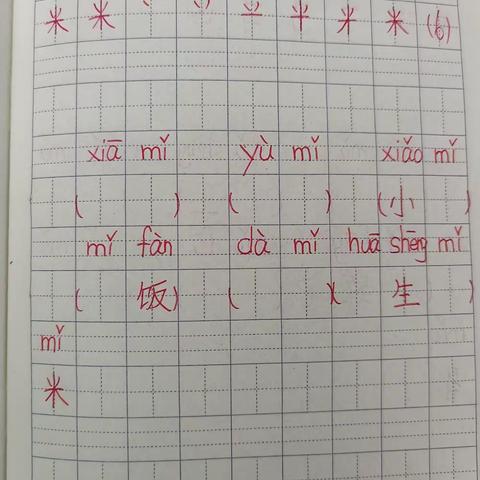 米 米 米 (6)
xiā mǐ yù mǐ xiǎo mǐ
( ) ( ) (小 )
mǐ fàn dà mǐ huā shēng mǐ
( 饭) ( )( 生 )
mǐ
米